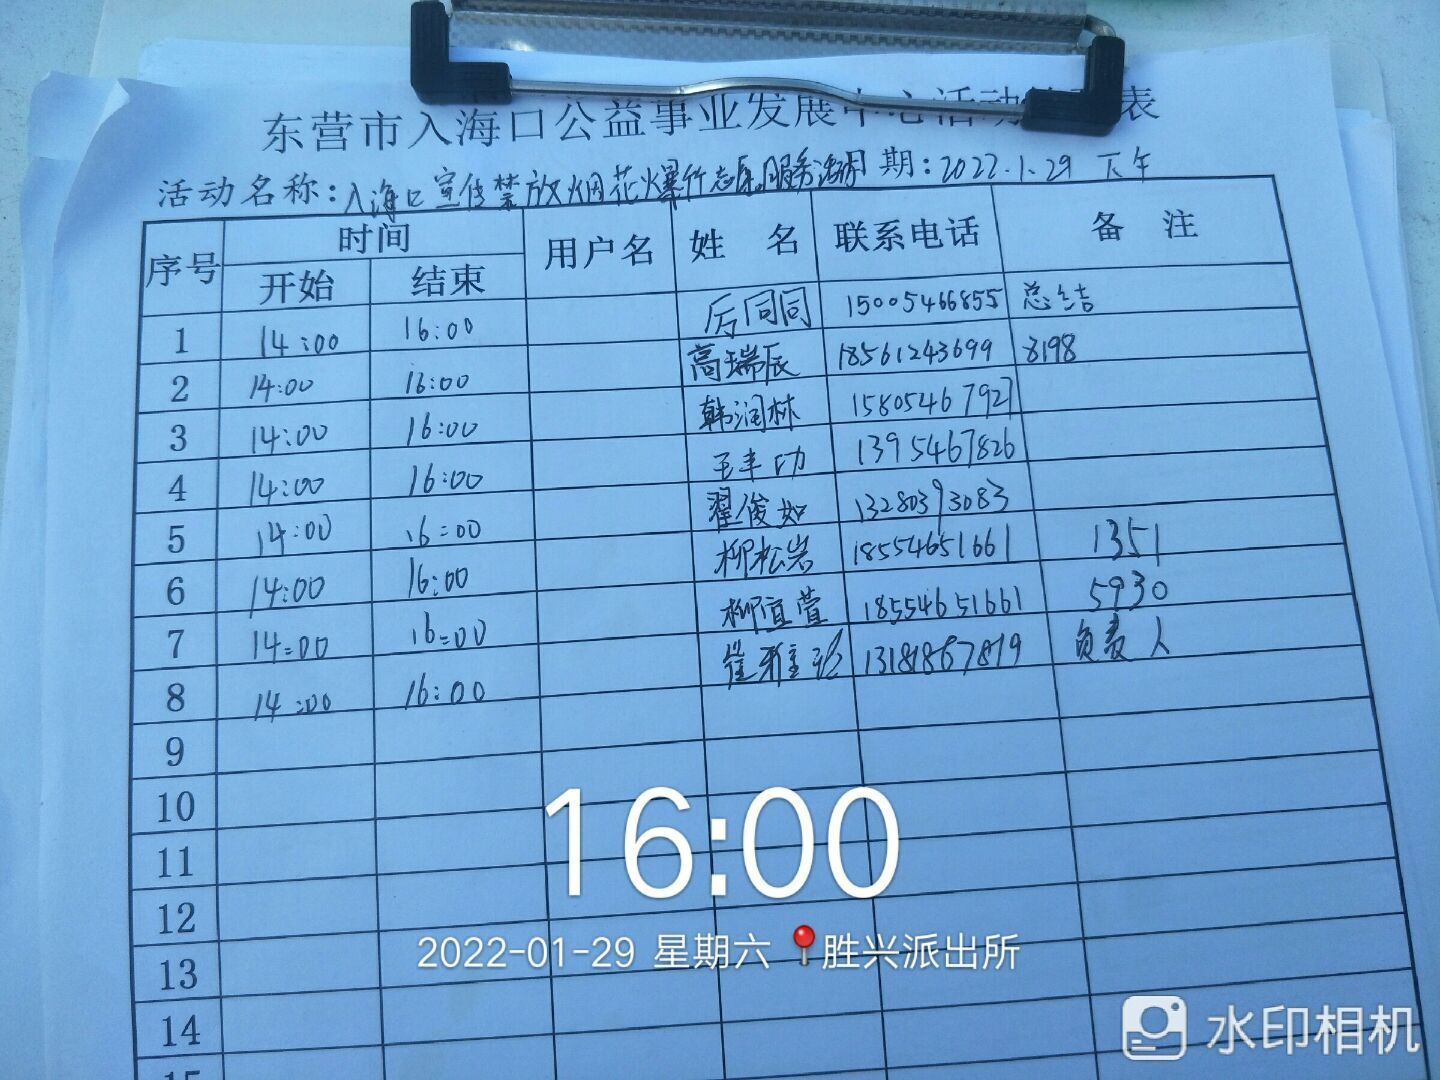 东营市入海口公益事业发展中心活动 表
活动名称:入海口宣传禁放烟花火爆竹志愿服务活动 日期:2022.1.29 下午
序号 时间 用户名 姓 名 联系电话 备 注
开始 结束
1 14:00 16:00 后同同 15005466855 总结
2 14:00 16:00 高瑞辰 18561243699 8198
3 14:00 16:00 韩润林 15805467927
4 14:00 16:00 王丰功 1395467826
5 14:00 16:00 翟俊如 13280393083
6 14:00 16:00 柳松岩 18554651661 1351
7 14:00 16:00 柳宜萱 18554651661 5930
8 14:00 16:00 崔雅 13181867819 负责人
9
10
11
12
13
14
15
16:00
2022-01-29 星期六 胜兴派出所
水印相机